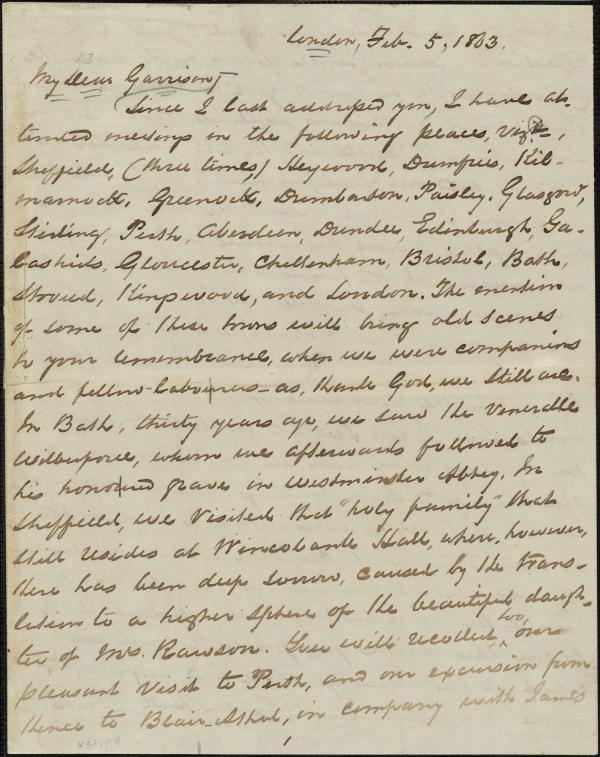 London, Feb. 5, 1863.
My Dear Garrison,
Since I last addressed you, I have at-
tended meetings in the following places, viz:—,
Sheffield, (three times) Heywood, Dumfries, Kil-
marnock, Greenock, Dumbarton, Paisley, Glasgow,
Stirling, Perth, Aberdeen, Dundee, Edinburgh, Ga-
lashiels, Gloucester, Cheltenham, Bristol, Bath,
Stroud, Kingswood, and London. The mention
of some of these towns will bring old scenes
to your remembrance, when we were companions
and fellow-labourers—as, thank God, we still are.
In Bath, thirty years ago, we saw the venerable
Wilberforce, whom we afterwards followed to
his honoured grave in Westminster Abbey. In
Sheffield, we visited that "holy family" that
still resides at Wincobank Hall, where, however,
there has been deep sorrow, caused by the trans-
lation to a higher sphere of the beautiful daugh-
ter of Mrs. Rawson. You will recollect, too, our
pleasant visit to Perth, and our excursion from
thence to Blair-Athol, in company with James